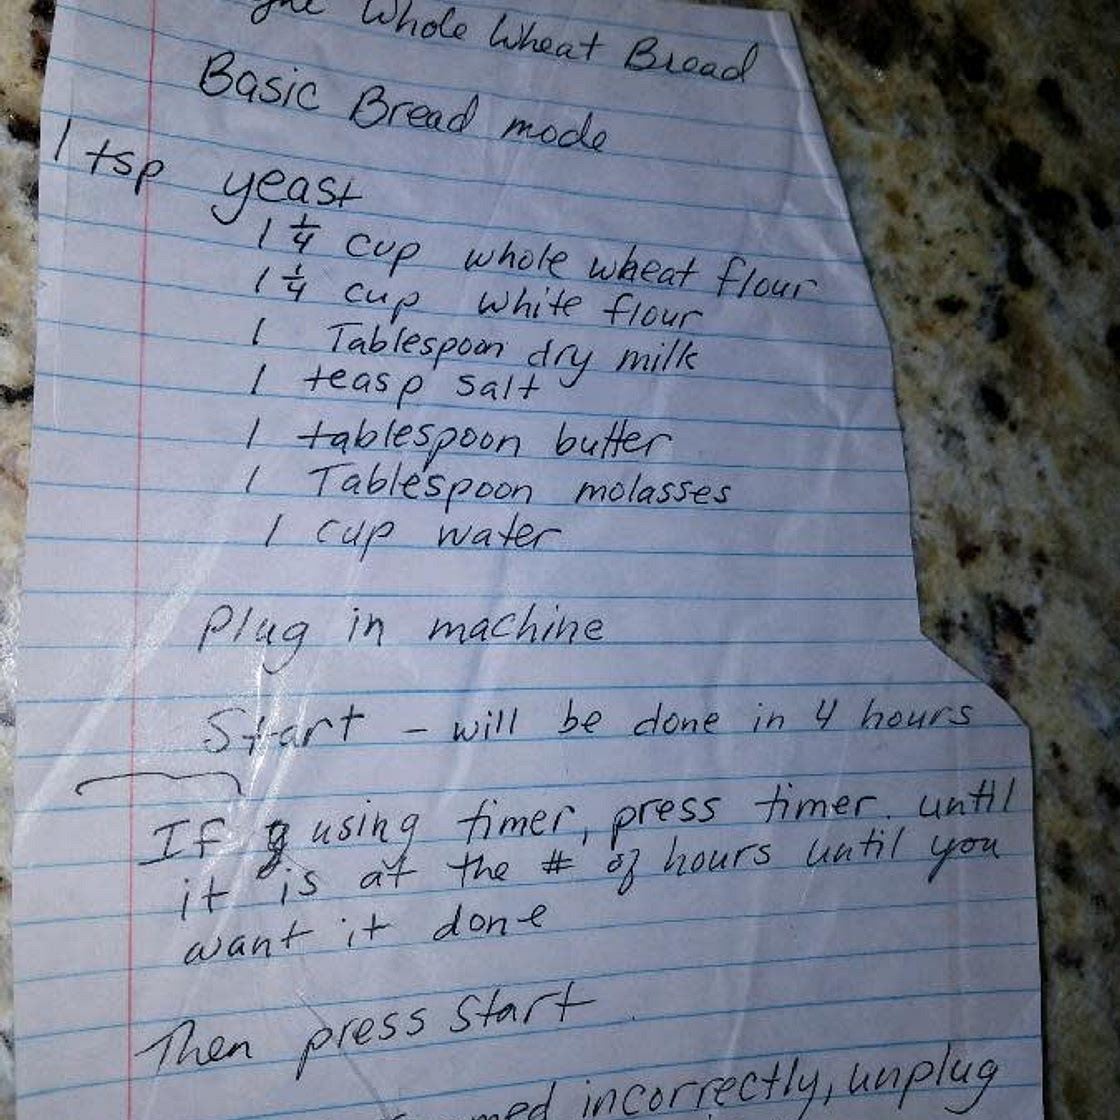 Whole Wheat Bread
Basic Bread mode
1 tsp yeast
1 1/4 cup whole wheat flour
1 1/4 cup white flour
1 Tablespoon dry milk
1 teasp salt
1 tablespoon butter
1 Tablespoon molasses
1 cup water
Plug in machine
Start - will be done in 4 hours
If using timer, press timer. until
it is at the # of hours until you
want it done
Then press Start
incorrectly, unplug